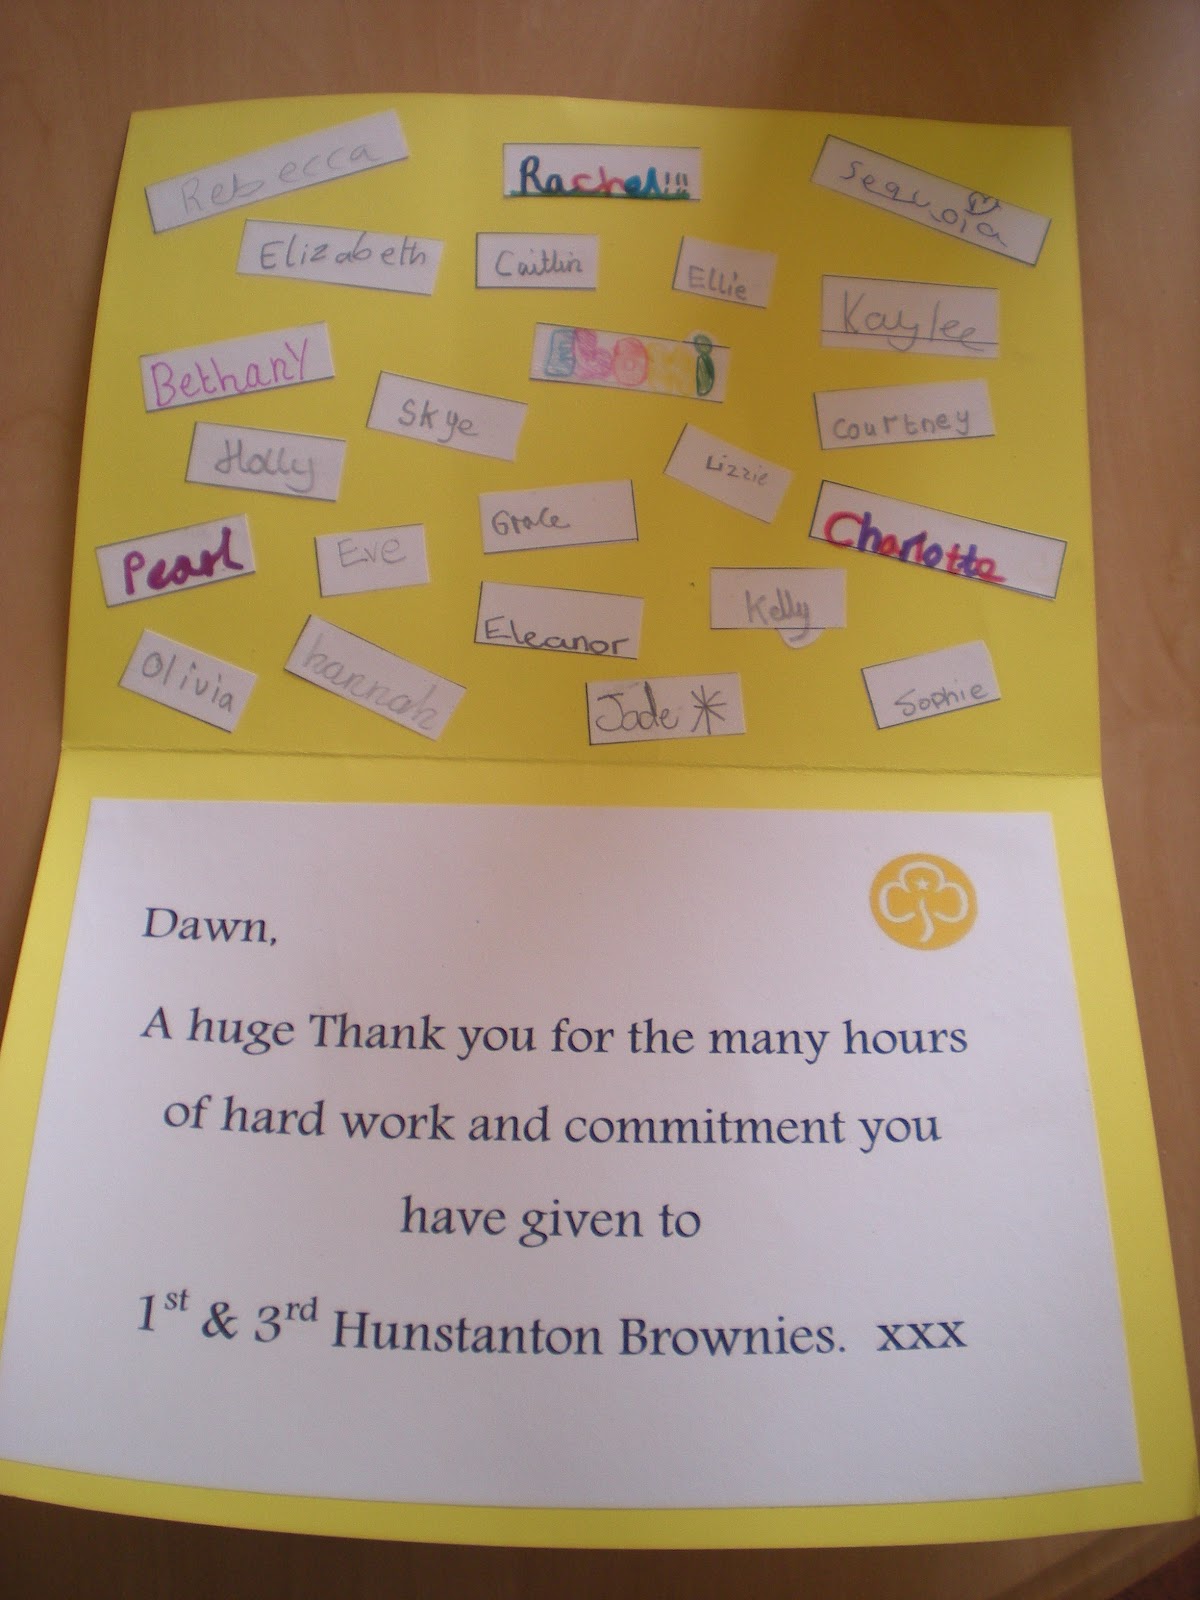 Rebecca
Rachel!!!
Sequoia
Elizabeth
Caitlin
Ellie
Kaylee
Bethany
Eloni
Skye
Courtney
Holly
Lizzie
Grace
Charlotte
Pearl
Eve
Eleanor
Kelly
Olivia
hannah
Jade *
Sophie
Dawn,
A huge Thank you for the many hours
of hard work and commitment you
have given to
1st & 3rd Hunstanton Brownies. xxx